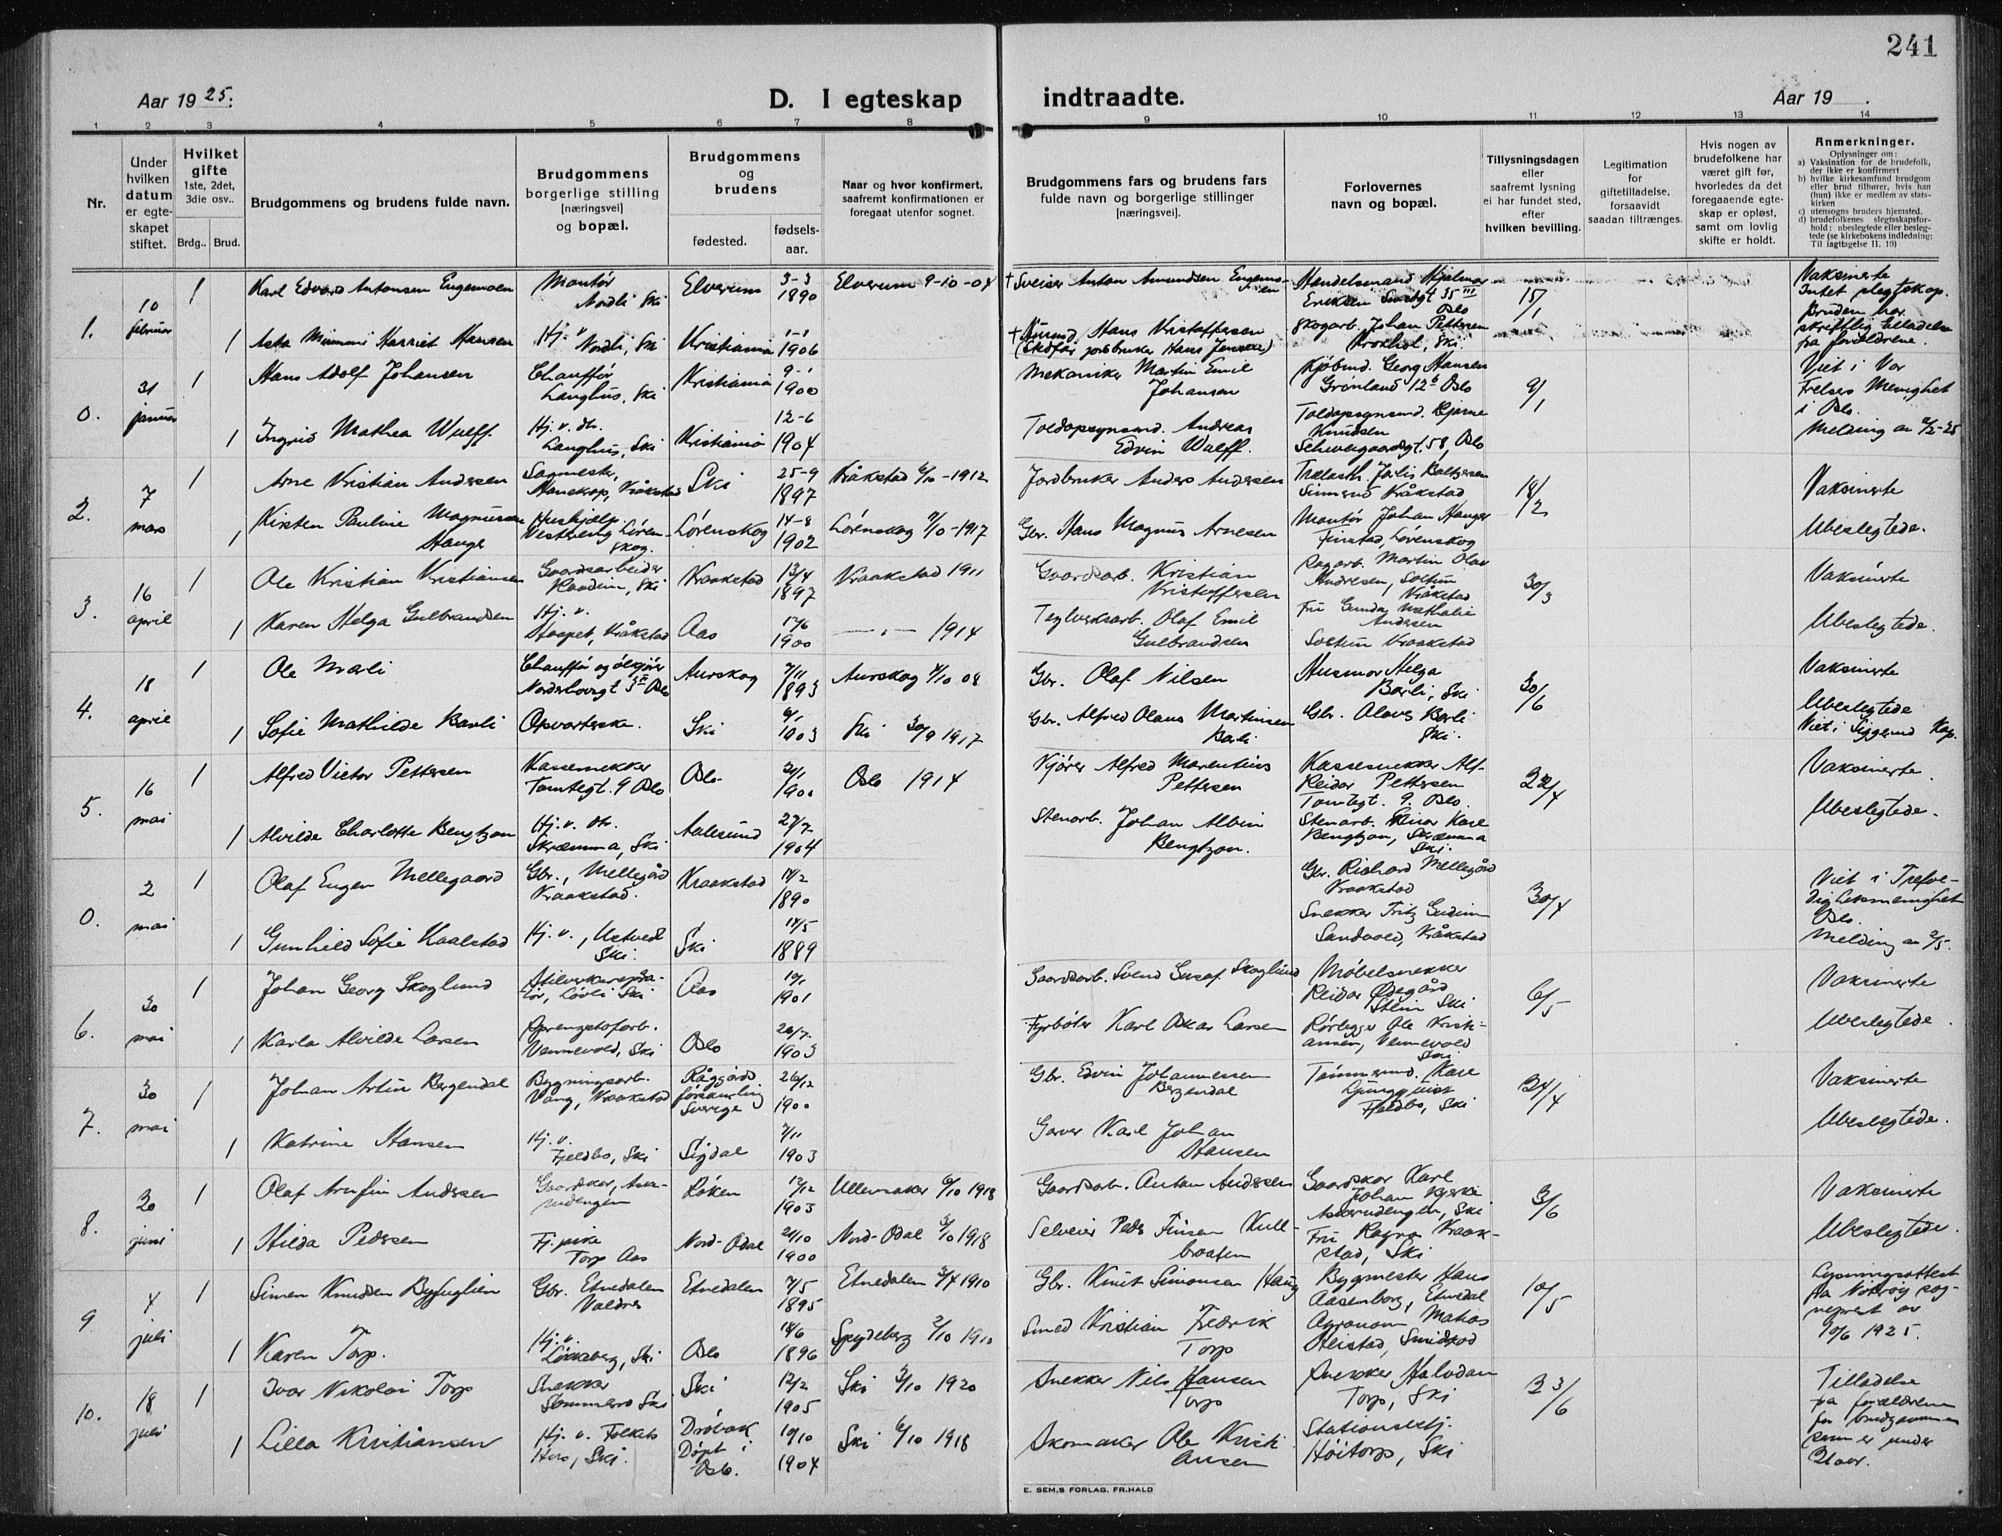 241
Aar 1925.
D. I egteskap indtraadte.
Aar 19 .
1 2 3 4 5 6 7 8 9 10 11 12 13 14
Nr.
Under hvilken datum er egteskapet stiftet.
Hvilket gifte 1ste, 2det, 3die osv..
Brdg.. Brud.
Brudgommens og brudens fulde navn.
Brudgommens borgerlige stilling (næringsvei) og bopæl.
Brudgommens og brudens
fødested. fødselsaar.
Naar og hvor konfirmert, saafremt konfirmationen er foregaat utenfor sognet.
Brudgommens fars og brudens fars fulde navn og borgerlige stillinger (næringsvei).
Forlovernes navn og bopæl.
Tillysningsdagen eller saafremt lysning ei har fundet sted, efter hvilken bevilling.
Legitimation for giftetilladelse, forsaavidt saadan tiltrænges.
Hvis nogen av brudefolkene har været gift før, hvorledes da det foregaaende egteskap er opløst, samt om lovlig skifte er holdt.
Anmerkninger.
Oplysninger om:
a) Vaksination for de brudefolk, der ikke er konfirmert
b) hvilke kirkesamfund brudgom eller brud tilhører, hvis han (hun) ikke er medlem av statskirken
c) utensogns bruders hjemsted.
d) brudefolkenes slegtsskapsforhold: ubeslegtede eller beslegtede (se kirkebokens indledning: Til iagttagelse II. 10)
1. 10 februar
1 Karl Edvard Antonsen Engemoen Montør Nordli Ski Elverum 3-3 1890 Elverum 9-10-04 † Sveiser Anton Amundsen Engemoen Handelsmand Hjalmar Eriksen Oslo 15/1 Vaksinerte Intet slegtskap. Bruden har skriftlig tiladelse fra forældrene.
1 Asta Mimmi Harriet Hansen Hj. v Nordli, Ski Kristiania 1-1 1906 † Hans Kristoffersen (Stedfar jordbruker Hans Jensen) Skogarb. Johan Pettersen Kroxhol, Ski
0. 31 januar
1 Hans Adolf Johansen Chauffør Langhus, Ski Kristiania 9-1 1900 Mekaniker Martin Emil Johansen Kjøbmd. Georg Hansen Grønland 12 b Oslo 9/1 Viet i Vor Frelsers Menighet i Oslo. Melding av 2/2-25
1 Ingrid Mathea Wulff Hj. v. dtr. Langhus, Ski Kristiania 12-6 1904 Toldopsynsmd. Andreas Edvin Wulff. Toldopsynsmd. Bjarne Knudsen Schweigaardsgt. 58, Oslo
2. 7 mars
1 Arne Kristian Andersen Sagmester, Kråkstad Ski 25-9 1897 Kråkstad 6/10-1912 Jordbruker Anders Andersen Kråkstad 14/2 Vaksinerte
1 Kirsten Pauline Magnussen Hauge Hushjelp Lørenskog. Lørenskog 14-8 1902 Lørenskog 7/10-1917 Gbr. Hans Magnus Arnesen Montør Johan Hauger Finstad, Lørenskog Ubeslegtede.
3. 16 april
1 Ole Kristian Kristiansen Gaardsarbeider Ski Kraakstad 13/4 1897 Kraakstad 1911 Gaardsarb. Kristian Kristoffersen Martin Olav Andresen, Kråkstad 30/3 Vaksinerte
1 Karen Helga Gulbrandsen Hj. v. Kråkstad Aas 17/6 1900 — „ — 1914 Teglverksarb. Olaf Emil Gulbrandsen Fru Gunda Nathalie Andersen Kraakstad Ubeslegtede.
4. 18 april
1 Ole Mærli Chauffør Oslo Aurskog 7/11 1893 Aurskog 4/10 08 Gbr. Olaf Nilsen Husmor Helga Barli, Ski 30/6 Vaksinerte
1 Sofie Mathilde Barli Opvarterske. Ski 6/1 1903 Ski 30/9 1917 Gbr. Alfred Olaus Martinsen Barli Gbr. Barli Ski. Ubeslegtede Viet i Siggerud Kap.
5. 16 mai
1 Alfred Victor Pettersen Kassesnekker Tomtegt. 9 Oslo Oslo 1900 Oslo 1914 Kjører Alfred Marentius Pettersen Kassesnekker Alf Reidar Pettersen Tomtegt. 9. Oslo. 22/4 Vaksinerte.
1 Alvilde Charlotte Bengtzon Hj. v. dtr. Skræmma, Ski Aalesund 27/7 1904 Stenarb. Johan Albin Bengtzon. Stenarb. Einar Karl Bengtzon, Skræmma Ski. Ubeslegtede.
0. 2 mai
1 Olaf Eugen Mellegaard Gbr., Mellegård Kraakstad. Kraakstad 14/2 1890 Gbr. Richard Mellegård Kraakstad 30/4 Viet i Trefoldighetsmenighet Oslo. Melding av 2/5.
1 Gunhild Sofie Kaalstad Hj. v., Ustvedt Ski. Ski 14/5 1889 Snekker Fritz Sandvold, Kråkstad
6. 30 mai
1 Johan Georg Skoglund Ski Aas 10/1 1901 Gaardsarb. Svend Gustaf Skoglund Møbelsnekker Reidar Ødegård Stein Ski 6/5 Vaksinerte
1 Karla Alvilde Larsen Sprengstofarb. Vennevold, Ski Oslo 26/7 1903 Fyrbøter Karl Oskar Larsen Rørlegger Ole Kristiansen, Vennevold Ski Ubeslegtede.
7. 30 mai
1 Johan Artur Bergendal Bygningsarb. Vang, Kraakstad Råggärds församling Sverige 26/12 1900 Gbr. Edvin Johannessen Bergendal Tømmermd. Karl Ljungqvist Fjeldbo, Ski 24/4 Vaksinerte
1 Katrine Hansen Hj. v. Fjeldbo, Ski Sigdal 7/11 1903 Garver Karl Johan Hansen Ubeslegtede.
8. 20 juni
1 Olaf Arnfin Andersen Røken 17/12 1903 Ullensaker 6/10 1918 Gaardsarb. Anton Andersen Karl Johan Bjerke Askerudengen, Ski 3/6 Vaksinerte
1 Hilda Pedersen Tj. pike Torp Aas Nord-Odal 24/10 1900 Nord-Odal 5/10 1918 Selveier Peder Finsen Kullbraaten Fru Ragna Kraakstad, Ski Ubeslegtede.
9 4 juli
1 Simen Knudsen Byfuglien Gbr. Etnedalen Valdres Etnedalen 7/5 1895 Etnedalen 3/7 1910 Gbr. Knut Simonsen Haug Bygmester Hans Aasenborg, Etnedal 10/5 Lysningsattest fra Nordre sogneprest av 10/6 1925.
1 Karen Torp. Hj. v. Ski Oslo 14/6 1896 Spydeberg 2/10 1910 Smed Kristian Fredrik Torp Agronom Mathias
10. 18 juli
1 Ivar Nikolai Torp Snekker Sommero Ski Ski 12/2 1905 Ski 3/10 1920 Snekker Nils Hansen Torp Snekker Halvdan Torp, Ski 23/6 Tilladelse fra forældrene for brudgommen som er under 21 aar.
1 Lilla Kristiansen Hj. v. Folkets Hus, Ski. Drøbak Døpt i Oslo. 10/10 1904 Ski 6/10 1918 Skomaker Ole Kristiansen Stationsbetj. Høitorp, Ski
E. SEM,S FORLAG, FR.HALD